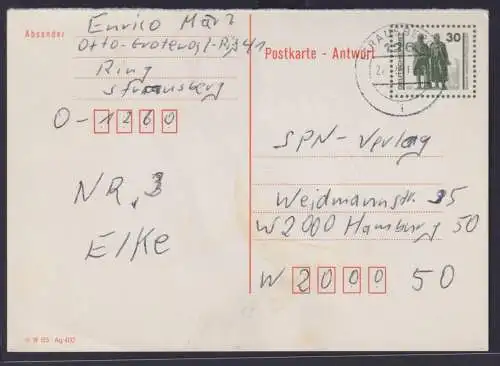 Absender
Enrico März
Otto-Grotewohl-Ring 41
Ring
Strausberg
O-1260
NR. 3
Elke
Postkarte - Antwort
30
SPN-Verlag
Weidmannstr. 35
W 2000 Hamburg 50
W 2000 50